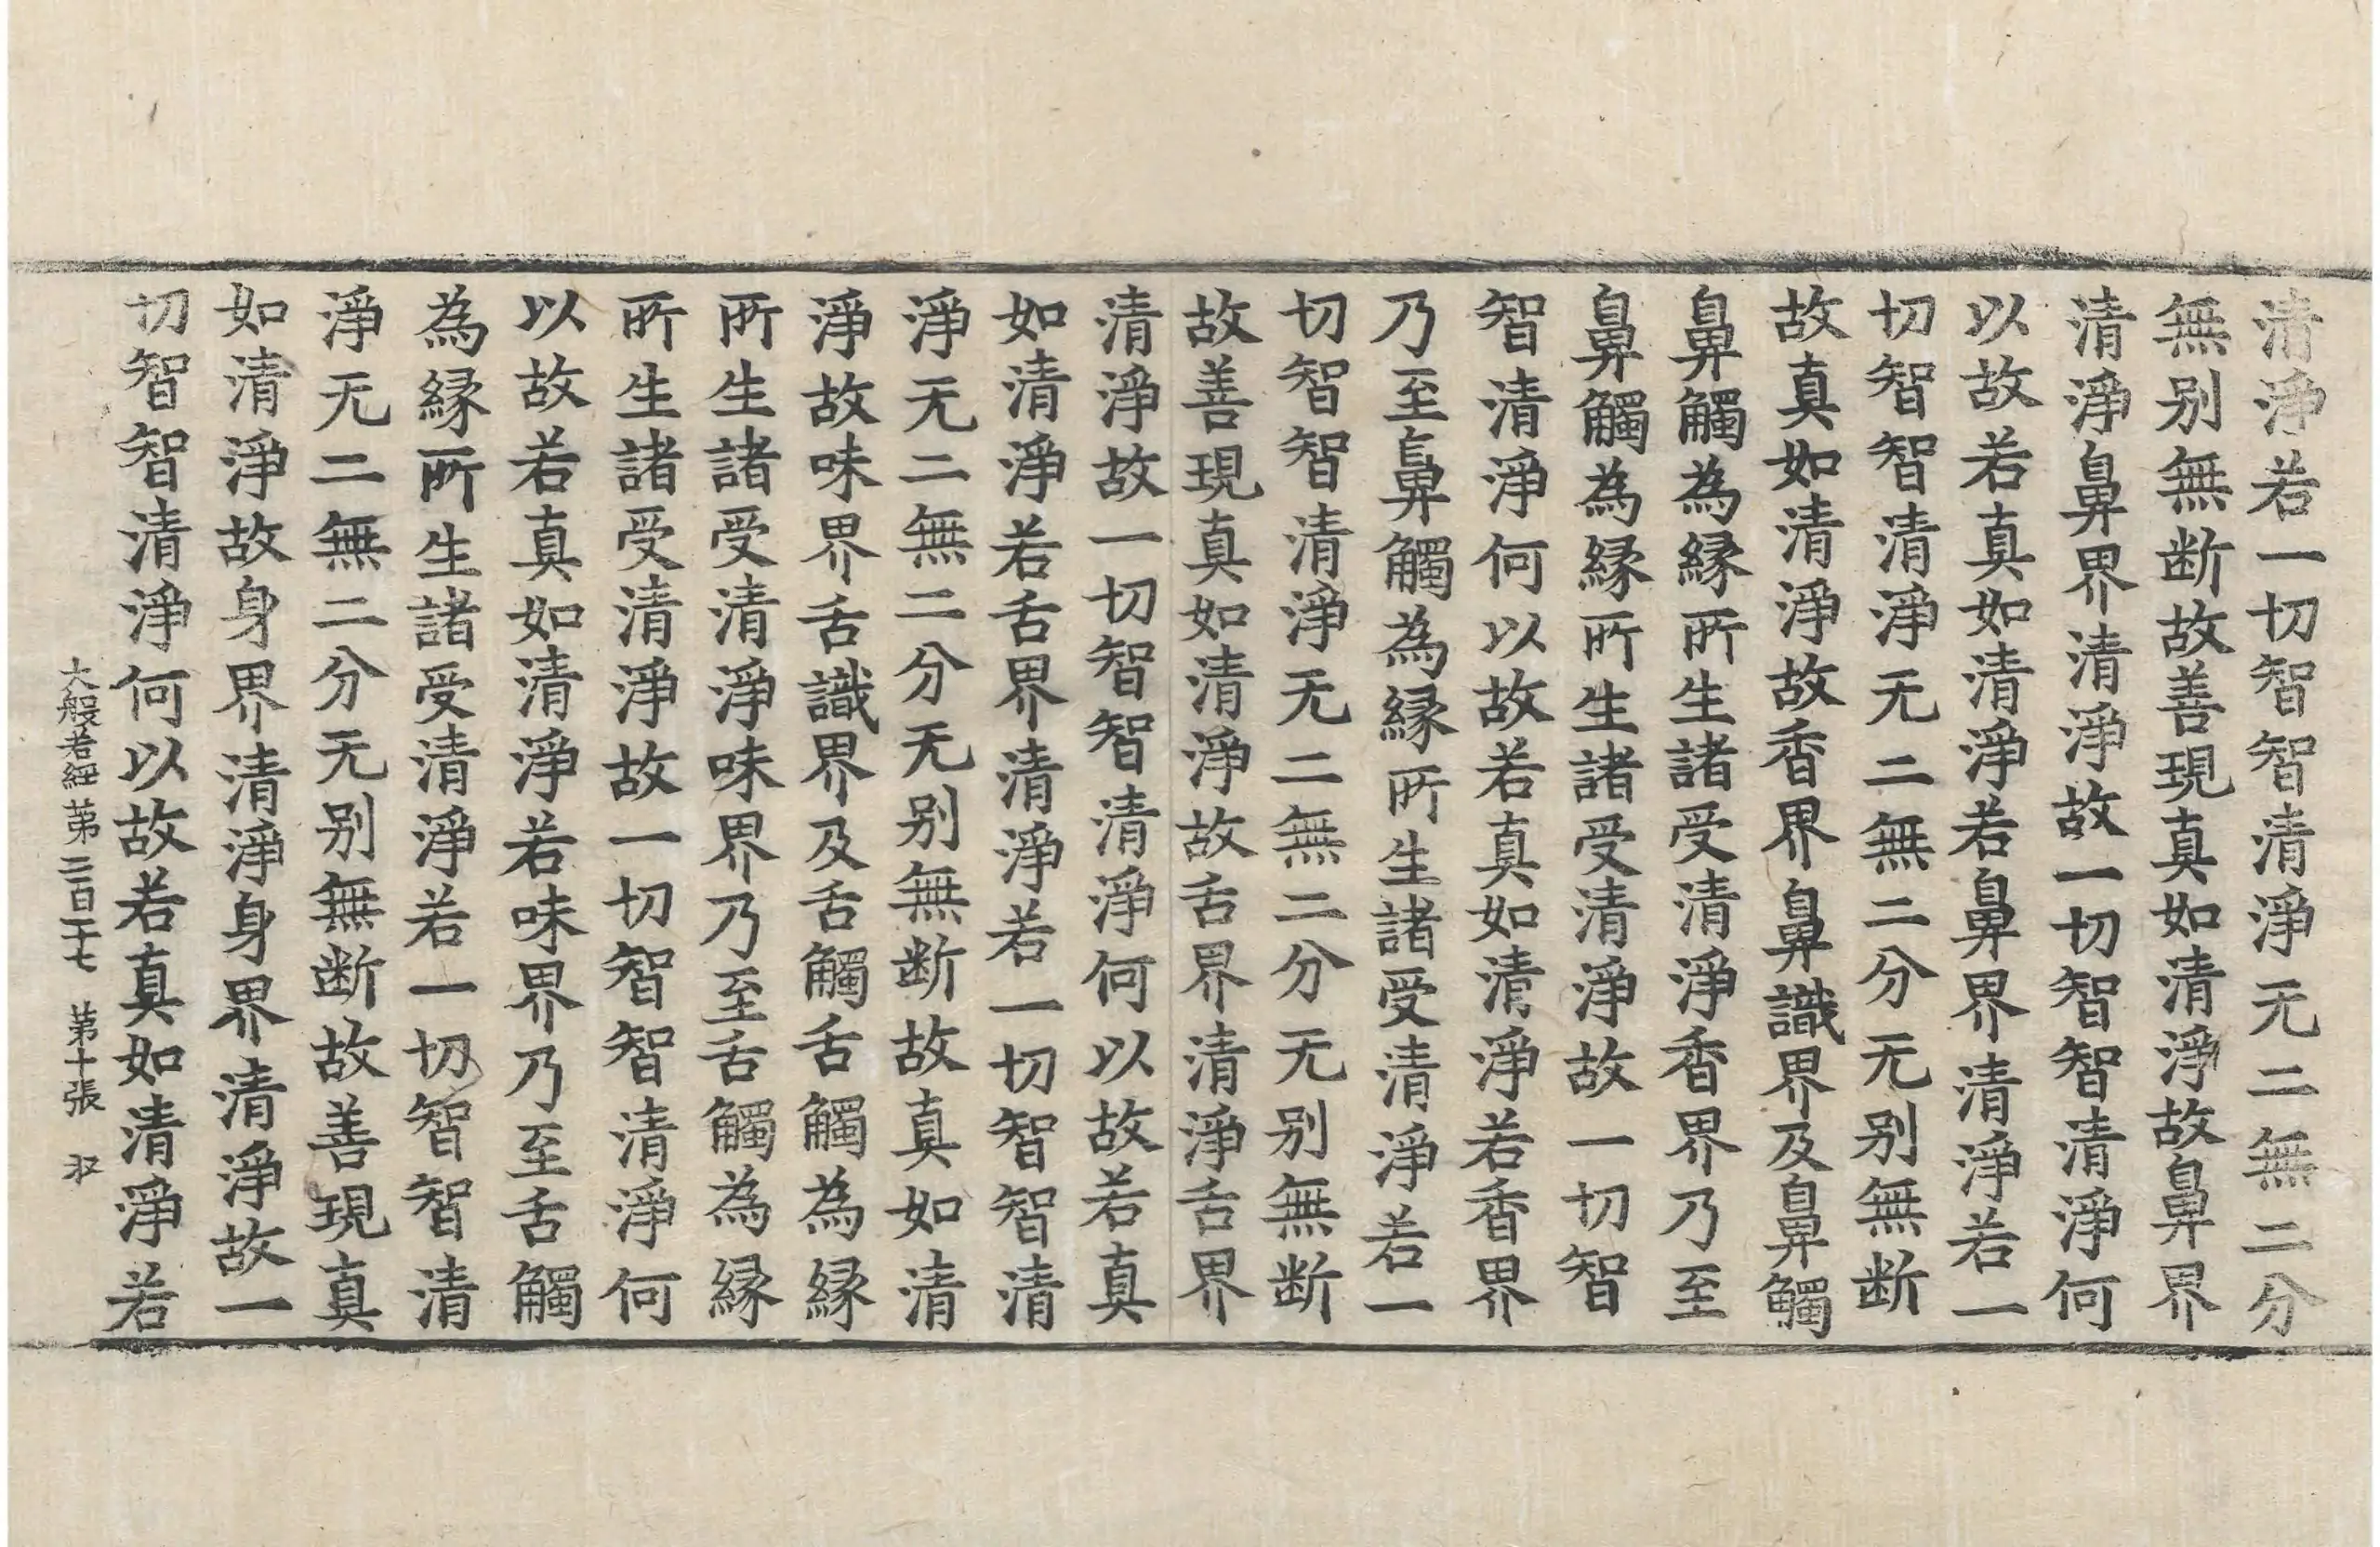 清淨若一切智智清淨无二無二分
無别無断故善現真如清淨故鼻界
清淨鼻界清淨故一切智智清淨何
以故若真如清淨若鼻界清淨若一
切智智清淨无二無二分无别無断
故真如清淨故香界鼻識界及鼻觸
鼻觸為縁所生諸受清淨香界乃至
鼻觸為縁所生諸受清淨故一切智
智清淨何以故若真如清淨若香界
乃至鼻觸為縁所生諸受清淨若一
切智智清淨无二無二分无别無断
故善現真如清淨故舌界清淨舌界
清淨故一切智智清淨何以故若真
如清淨若舌界清淨若一切智智清
淨无二無二分无别無断故真如清
淨故味界舌識界及舌觸舌觸為縁
所生諸受清淨味界乃至舌觸為縁
所生諸受清淨故一切智智清淨何
以故若真如清淨若味界乃至舌觸
為縁所生諸受清淨若一切智智清
淨无二無二分无别無断故善現真
如清淨故身界清淨身界清淨故一
切智智清淨何以故若真如清淨若
大般若經第二百二十七 第十張